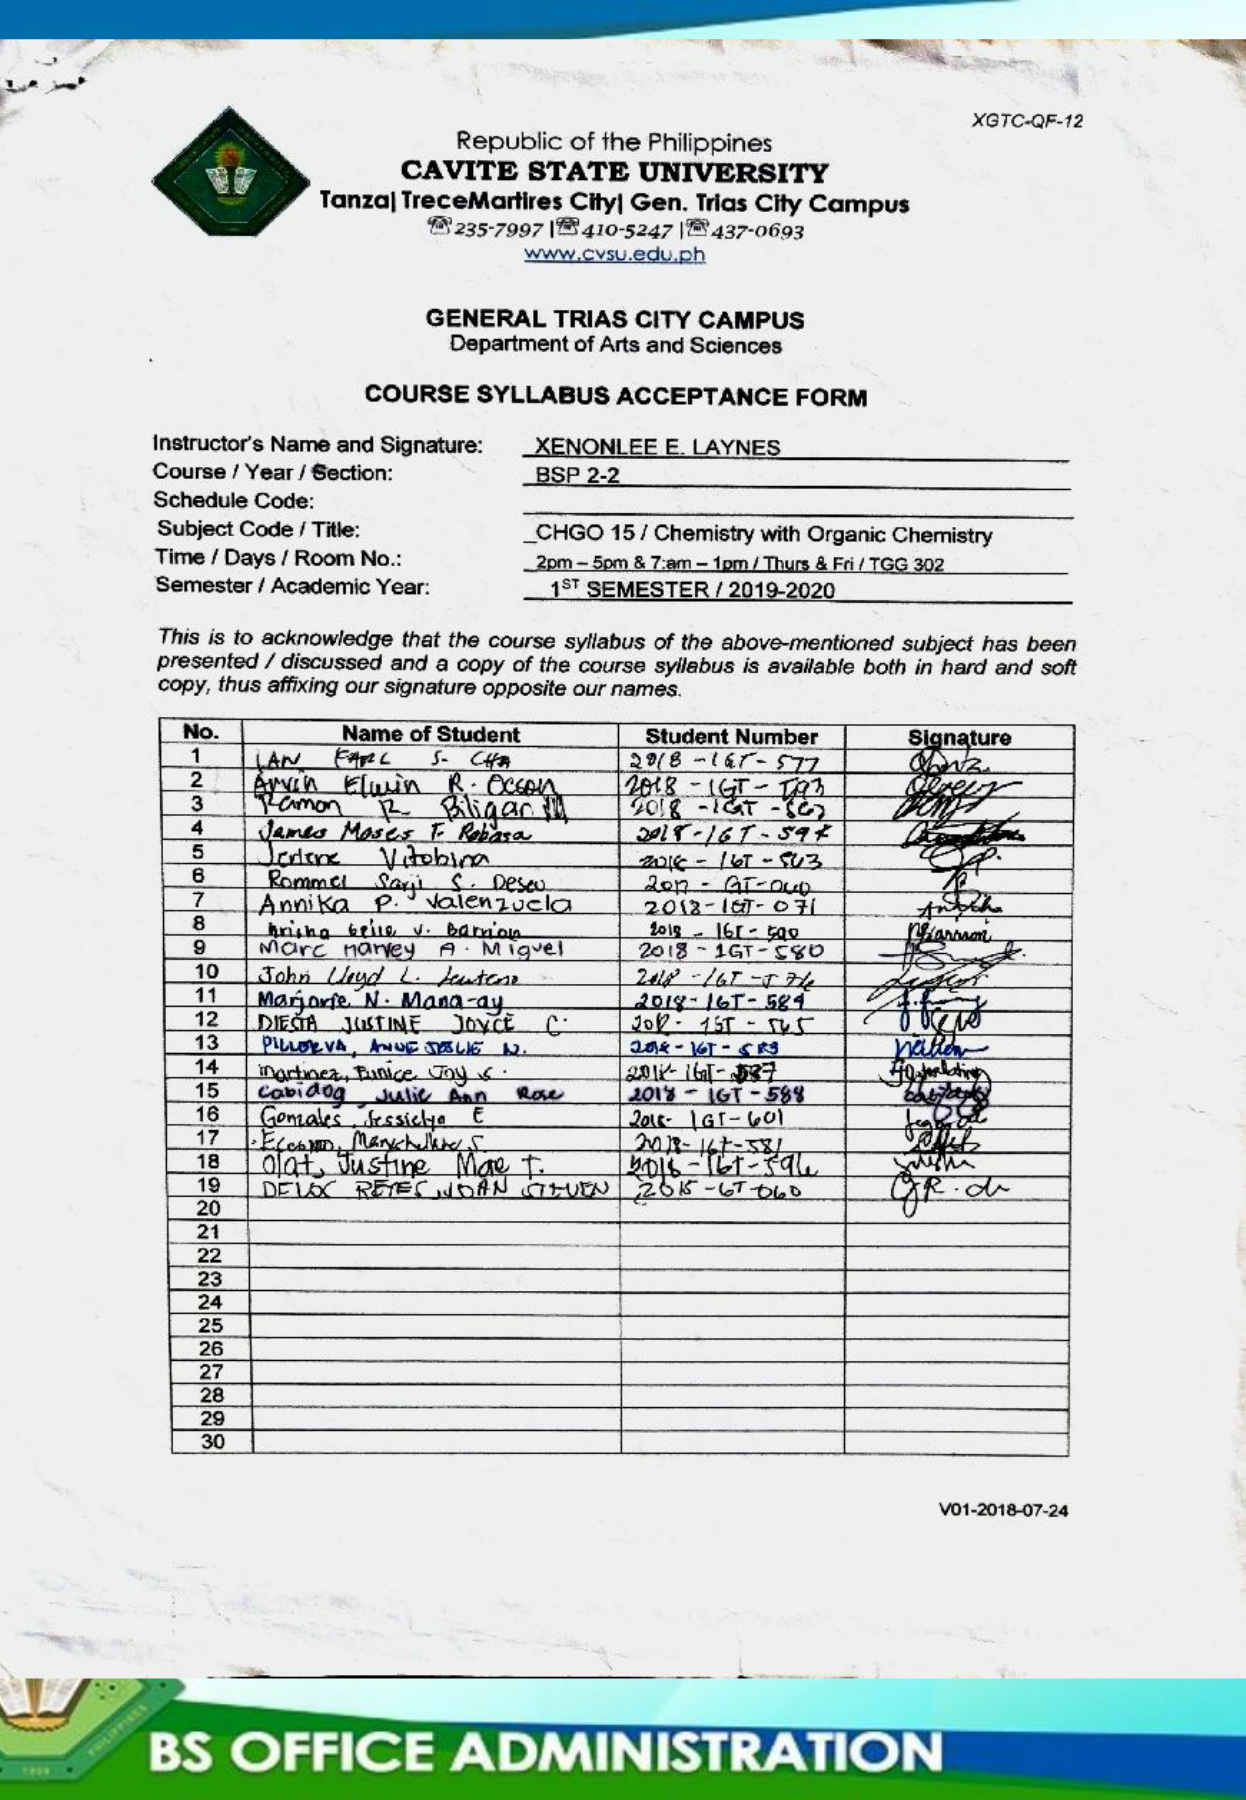 XGTC-QF-12
Republic of the Philippines
CAVITE STATE UNIVERSITY
Tanza| TreceMartires City| Gen. Trias City Campus
☎235-7997 |☎410-5247 |☎437-0693
www.cvsu.edu.ph
GENERAL TRIAS CITY CAMPUS
Department of Arts and Sciences
COURSE SYLLABUS ACCEPTANCE FORM
Instructor's Name and Signature: XENONLEE E. LAYNES
Course / Year / Section: BSP 2-2
Schedule Code:
Subject Code / Title: CHGO 15 / Chemistry with Organic Chemistry
Time / Days / Room No.: 2pm – 5pm & 7:am – 1pm / Thurs & Fri / TGG 302
Semester / Academic Year: 1ST SEMESTER / 2019-2020
This is to acknowledge that the course syllabus of the above-mentioned subject has been
presented / discussed and a copy of the course syllabus is available both in hard and soft
copy, thus affixing our signature opposite our names.
No. Name of Student Student Number Signature
1 IAN EARL S. 2018-1GT-577
2 Elwin R. 2018-1GT-
3 Ramon R. Biligan III 2018-1GT-
4 James Moses F. Robasa 2018-1GT-
5 Vitobina 1GT-563
6 Rommel S. 2017-GT-040
7 Annika P. Valenzuela 2018-1GT-071
8 V. Barrion 2018-1GT-590
9 Marc Harvey A. Miguel 2018-1GT-580
10 John Lloyd L. 2018-1GT-576
11 Marjorie N. Mana-ay 2018-1GT-589
12 DIESTA JUSTINE JOYCE C.
13 ANNE N. 2018-1GT-583
14 Martinez, Eunice Joy S. 2018-1GT-587
15 Cabidog, Julie Ann Rose 2018-1GT-588
16 Gonzales, E 2018-1GT-601
17 2018-1GT-581
18 Olat, Justine Mae T. 2018-1GT-596
19 DELOS REYES, JOAN STEVEN 2015-GT-060
20
21
22
23
24
25
26
27
28
29
30
V01-2018-07-24
BS OFFICE ADMINISTRATION